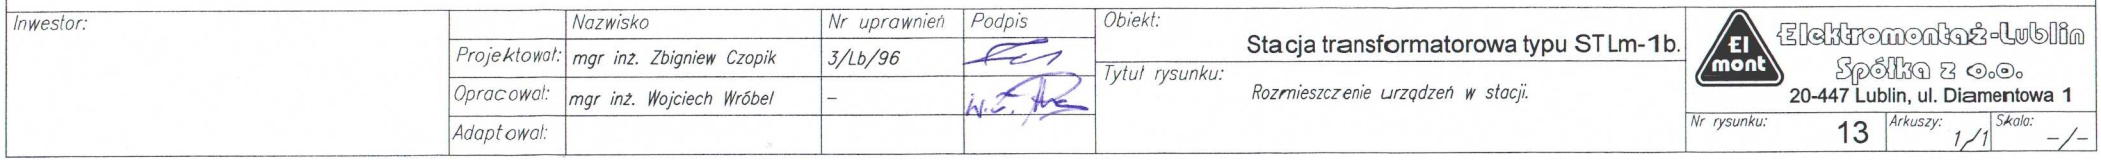 Inwestor:
Nazwisko
Nr uprawnień
Podpis
Projektował: mgr inż. Zbigniew Czopik 3/Lb/96
Opracował: mgr inż. Wojciech Wróbel –
Adaptował:
Obiekt:
Stacja transformatorowa typu STLm-1b.
Tytuł rysunku:
Rozmieszczenie urządzeń w stacji.
El
mont
Elektromontaż-Lublin
Spółka z o.o.
20-447 Lublin, ul. Diamentowa 1
Nr rysunku: 13
Arkuszy: 1/1
Skala: -/-